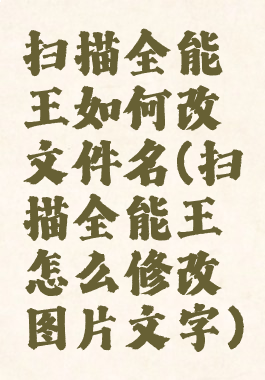 扫描全能
王如何改
文件名(扫
描全能王
怎么修改
图片文字)